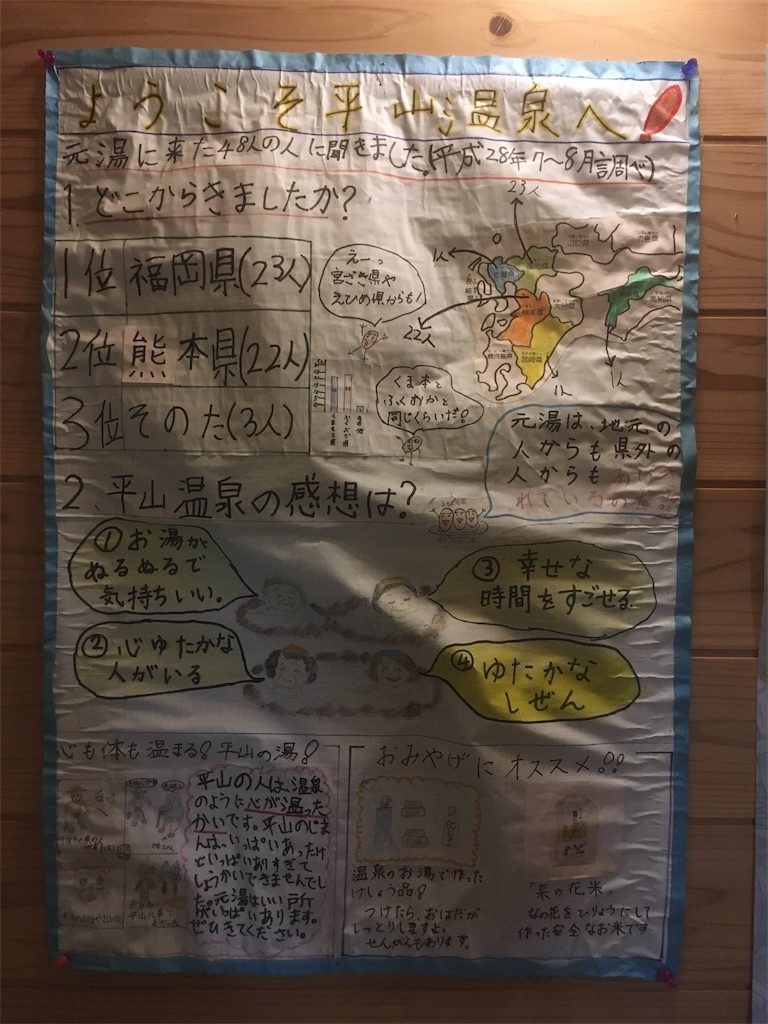 ようこそ平山温泉へ!
元湯に来た48人の人に聞きました。(平成28年7〜8月調べ)
1. どこからきましたか?
1位 福岡県(23人)
2位 熊本県(22人)
3位 そのた(3人)
えーっ
宮ざき県や
えひめ県からも!
くま本と
ふくおかと
同じくらいだ!
23人
1人
22人
1人
1人
山口県
元湯は、地元の
人からも県外の
人からも
れている
2、平山温泉の感想は?
①お湯が
ぬるぬるで
気持ちいい。
②心ゆたかな
人がいる
③幸せな
時間をすごせる
④ゆたかな
しぜん
心も体も温まる!平山の湯!
平山の人は、温泉
のように心が温った
かいです。平山のじま
んは、いっぱいあったけ
どいっぱいありすぎて
しょうかいできませんでし
た。元湯はいい所
がいっぱいあります。
ぜひきてください。
おみやげにオススメ!!
温泉のお湯で作った
けしょう品!
つけたら、おはだが
しっとりしますよ。
せんがんもあります。
「菜の花米」
なの花をひりょうにして
作った安全なお米です